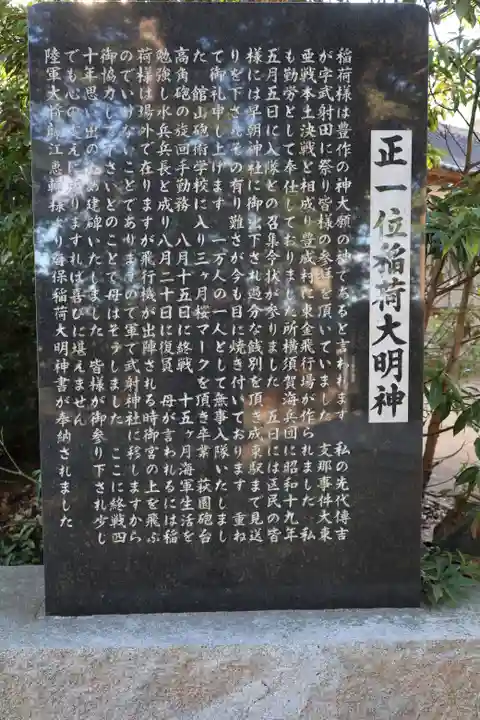 正一位稲荷大明神
稲荷様は豊作の神大願の神であると言われます 私の先代傳吉
が字武射田に祭り皆様の参拝を頂いていました 支那事件大東
亜戦本土決戦と相成り豊成村に東金飛行場が作られました 私
も勤労として奉仕しておりました所横須賀海兵団に昭和十九年
五月五日に入隊との召集令状が参りました 五日には区民の皆
様には早朝神社に御出下され過分な餞別を頂き成東駅まで見送
りを下さいその有り難さが今も目に焼き付いております 重ね
て御礼申し上げます 一万人の一人として無事入隊いたしまし
た 館山砲術学校に入り三ヶ月桜マークを頂き卒業 萩園砲台
高角砲の旋回手勤務 八月十五日に終戦 十五ヶ月海軍生活を
勉強し水兵兵長と成り八月二十日に復員 母が言われるには稲
荷様は場外で在りますが飛行機が出陣される時御宮の上を飛ぶ
のでいけないことでありますので軍で武射神社に移しますから
御協力して下さいとのことで母はそうしました ここに終戦四
十年思い出のため建碑いたしました 皆様が御参り下され少し
でも心の支えになりますれば喜びに堪えません
陸軍大将 江恵 様より海保稲荷大明神書が奉納されました